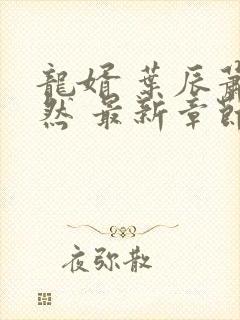 龍婿 葉辰蕭
然 最新章節
夜弥散